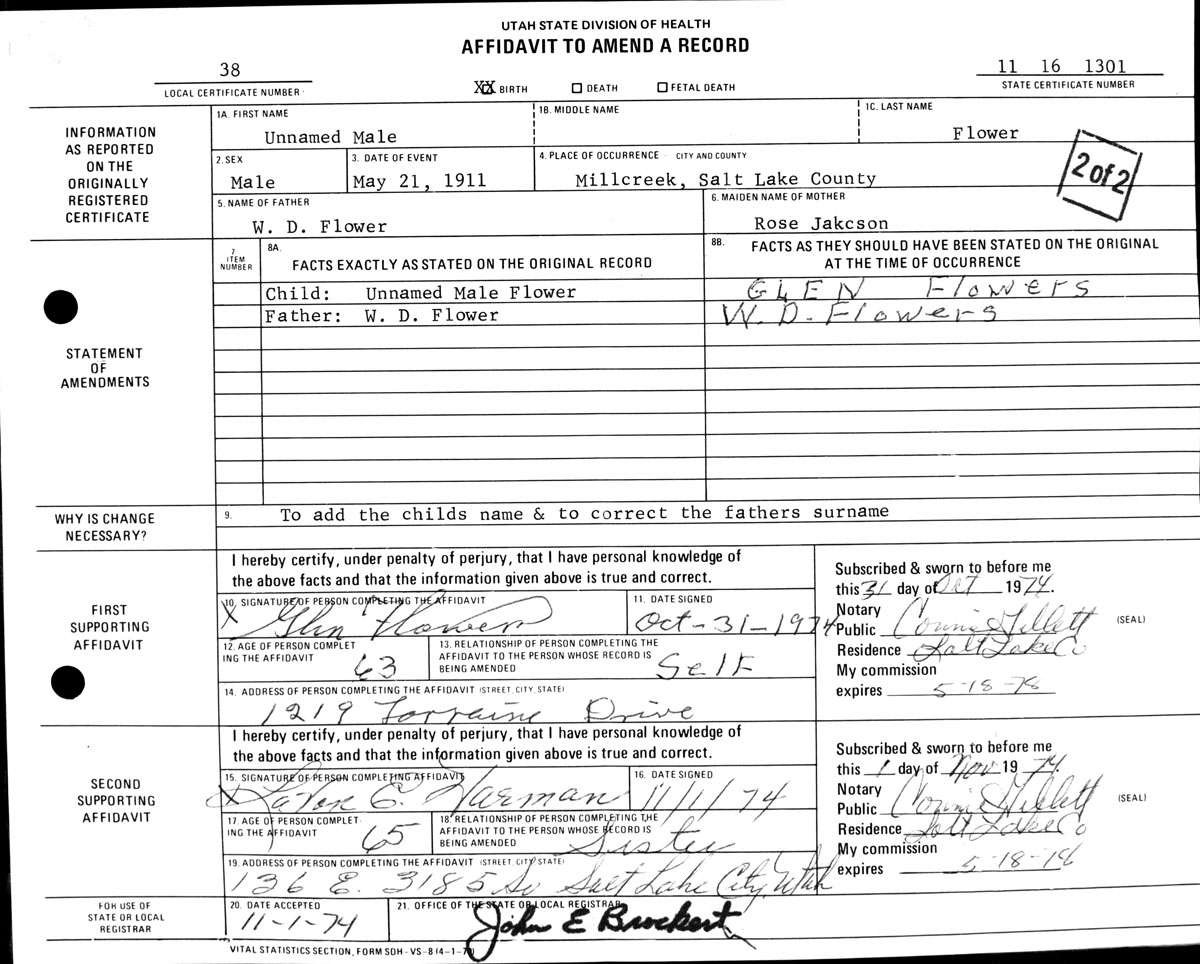 UTAH STATE DIVISION OF HEALTH
AFFIDAVIT TO AMEND A RECORD
38
LOCAL CERTIFICATE NUMBER
XX BIRTH DEATH FETAL DEATH
11 16 1301
STATE CERTIFICATE NUMBER
INFORMATION
AS REPORTED
ON THE
ORIGINALLY
REGISTERED
CERTIFICATE
1A. FIRST NAME
Unnamed Male
1B. MIDDLE NAME
1C. LAST NAME
Flower
2. SEX
Male
3. DATE OF EVENT
May 21, 1911
4. PLACE OF OCCURRENCE - CITY AND COUNTY
Millcreek, Salt Lake County
2 of 2
5. NAME OF FATHER
W. D. Flower
6. MAIDEN NAME OF MOTHER
Rose Jakcson
STATEMENT
OF
AMENDMENTS
7
ITEM
NUMBER
8A.
FACTS EXACTLY AS STATED ON THE ORIGINAL RECORD
8B. FACTS AS THEY SHOULD HAVE BEEN STATED ON THE ORIGINAL
AT THE TIME OF OCCURRENCE
Child: Unnamed Male Flower
GLEN Flowers
Father: W. D. Flower
W. D. Flowers
WHY IS CHANGE
NECESSARY?
9. To add the childs name & to correct the fathers surname
FIRST
SUPPORTING
AFFIDAVIT
I hereby certify, under penalty of perjury, that I have personal knowledge of
the above facts and that the information given above is true and correct.
10. SIGNATURE OF PERSON COMPLETING THE AFFIDAVIT
X Glen Flowers
11. DATE SIGNED
Oct-31-1974
12. AGE OF PERSON COMPLET
ING THE AFFIDAVIT
63
13. RELATIONSHIP OF PERSON COMPLETING THE
AFFIDAVIT TO THE PERSON WHOSE RECORD IS
BEING AMENDED
Self
14. ADDRESS OF PERSON COMPLETING THE AFFIDAVIT (STREET, CITY, STATE)
1219 Lorraine Drive
Subscribed & sworn to before me
this 31 day of Oct 1974.
Notary
Public Connie Gillett
(SEAL)
Residence Salt Lake Co
My commission
expires 5-18-78
SECOND
SUPPORTING
AFFIDAVIT
I hereby certify, under penalty of perjury, that I have personal knowledge of
the above facts and that the information given above is true and correct.
15. SIGNATURE OF PERSON COMPLETING AFFIDAVIT
X LaVon E. Harman
16. DATE SIGNED
11/1/74
17. AGE OF PERSON COMPLET
ING THE AFFIDAVIT
65
18. RELATIONSHIP OF PERSON COMPLETING THE
AFFIDAVIT TO THE PERSON WHOSE RECORD IS
BEING AMENDED
Sister
19. ADDRESS OF PERSON COMPLETING THE AFFIDAVIT (STREET, CITY, STATE)
136 E. 3185 So Salt Lake City, Utah
Subscribed & sworn to before me
this 1 day of Nov 1974.
Notary
Public Connie Gillett
(SEAL)
Residence Salt Lake Co
My commission
expires 5-18-78
FOR USE OF
STATE OR LOCAL
REGISTRAR
20. DATE ACCEPTED
11-1-74
21. OFFICE OF THE STATE OR LOCAL REGISTRAR
John E Brockert
VITAL STATISTICS SECTION, FORM SDH-VS-8 (4-1-